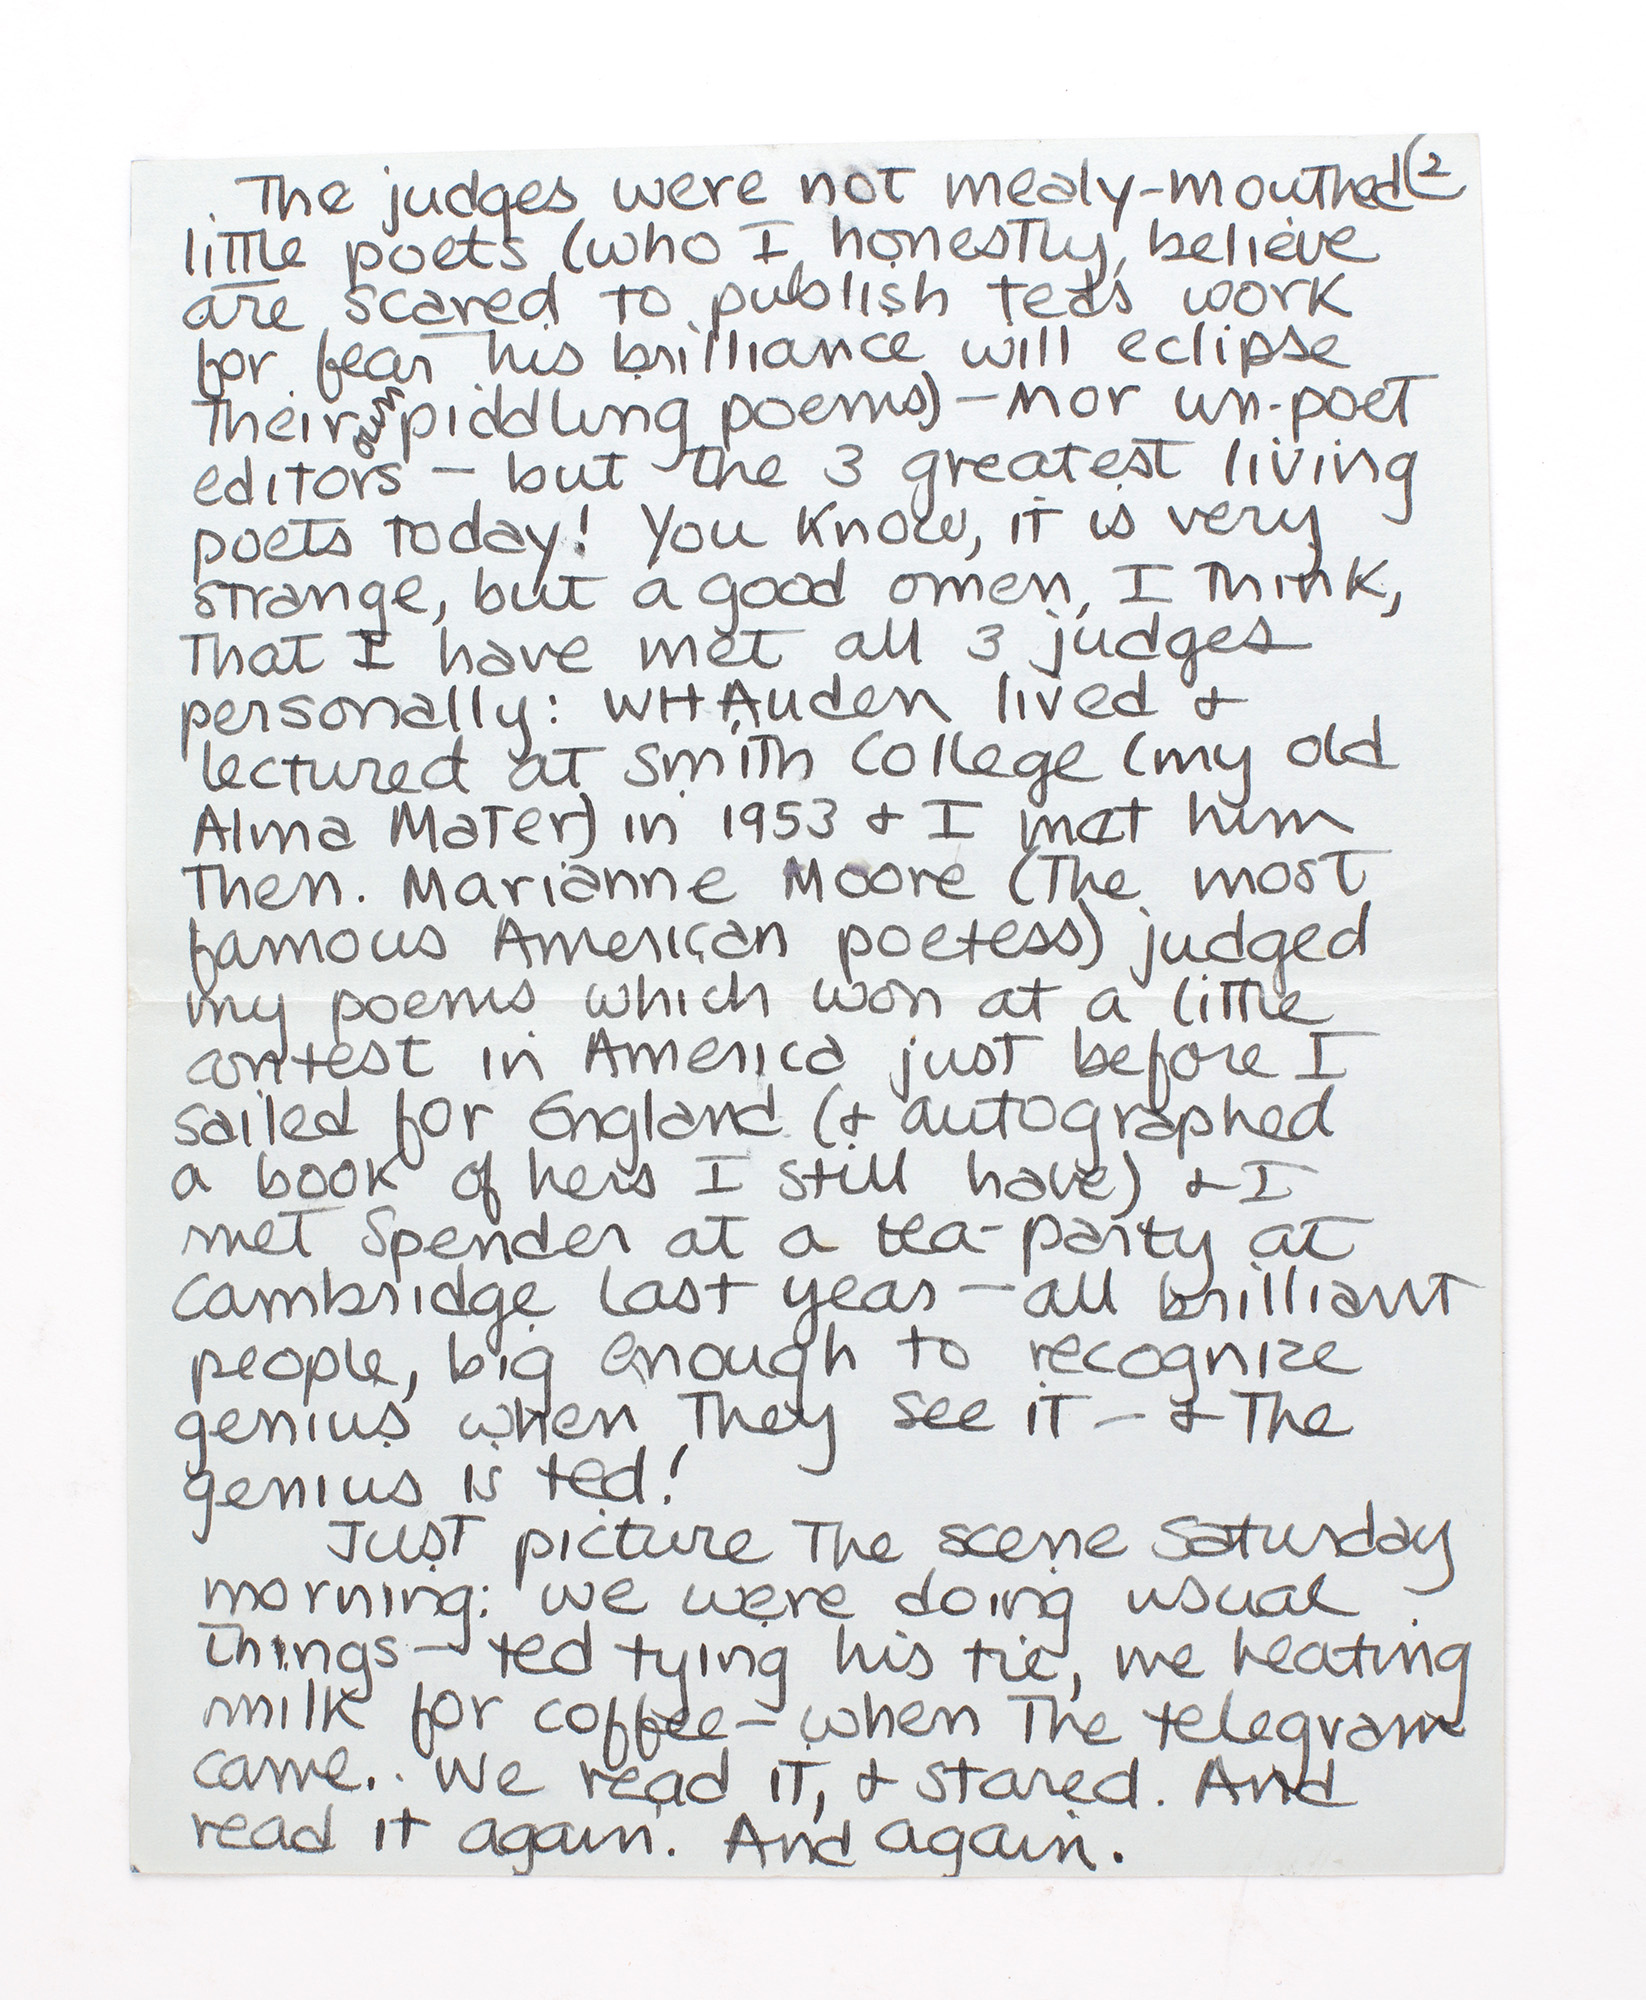 The judges were not mealy-mouthed (2
little poets (who I honestly believe
are scared to publish teds work
for fear his brilliance will eclipse
their own piddling poems) — nor un-poet
editors — but the 3 greatest living
poets today! You know, it is very
strange, but a good omen, I think,
that I have met all 3 judges
personally: WH Auden lived &
lectured at Smith College (my old
Alma Mater) in 1953 & I met him
then. Marianne Moore (the most
famous American poetess) judged
my poems which won at a little
contest in America just before I
sailed for England (& autographed
a book of hers I still have) & I
met Spender at a tea-party at
Cambridge last year — all brilliant
people, big enough to recognize
genius when they see it — & the
genius is ted!
Just picture the scene Saturday
morning: we were doing usual
things — ted tying his tie, me heating
milk for coffee — when the telegram
came.. We read it, & stared. And
read it again. And again.